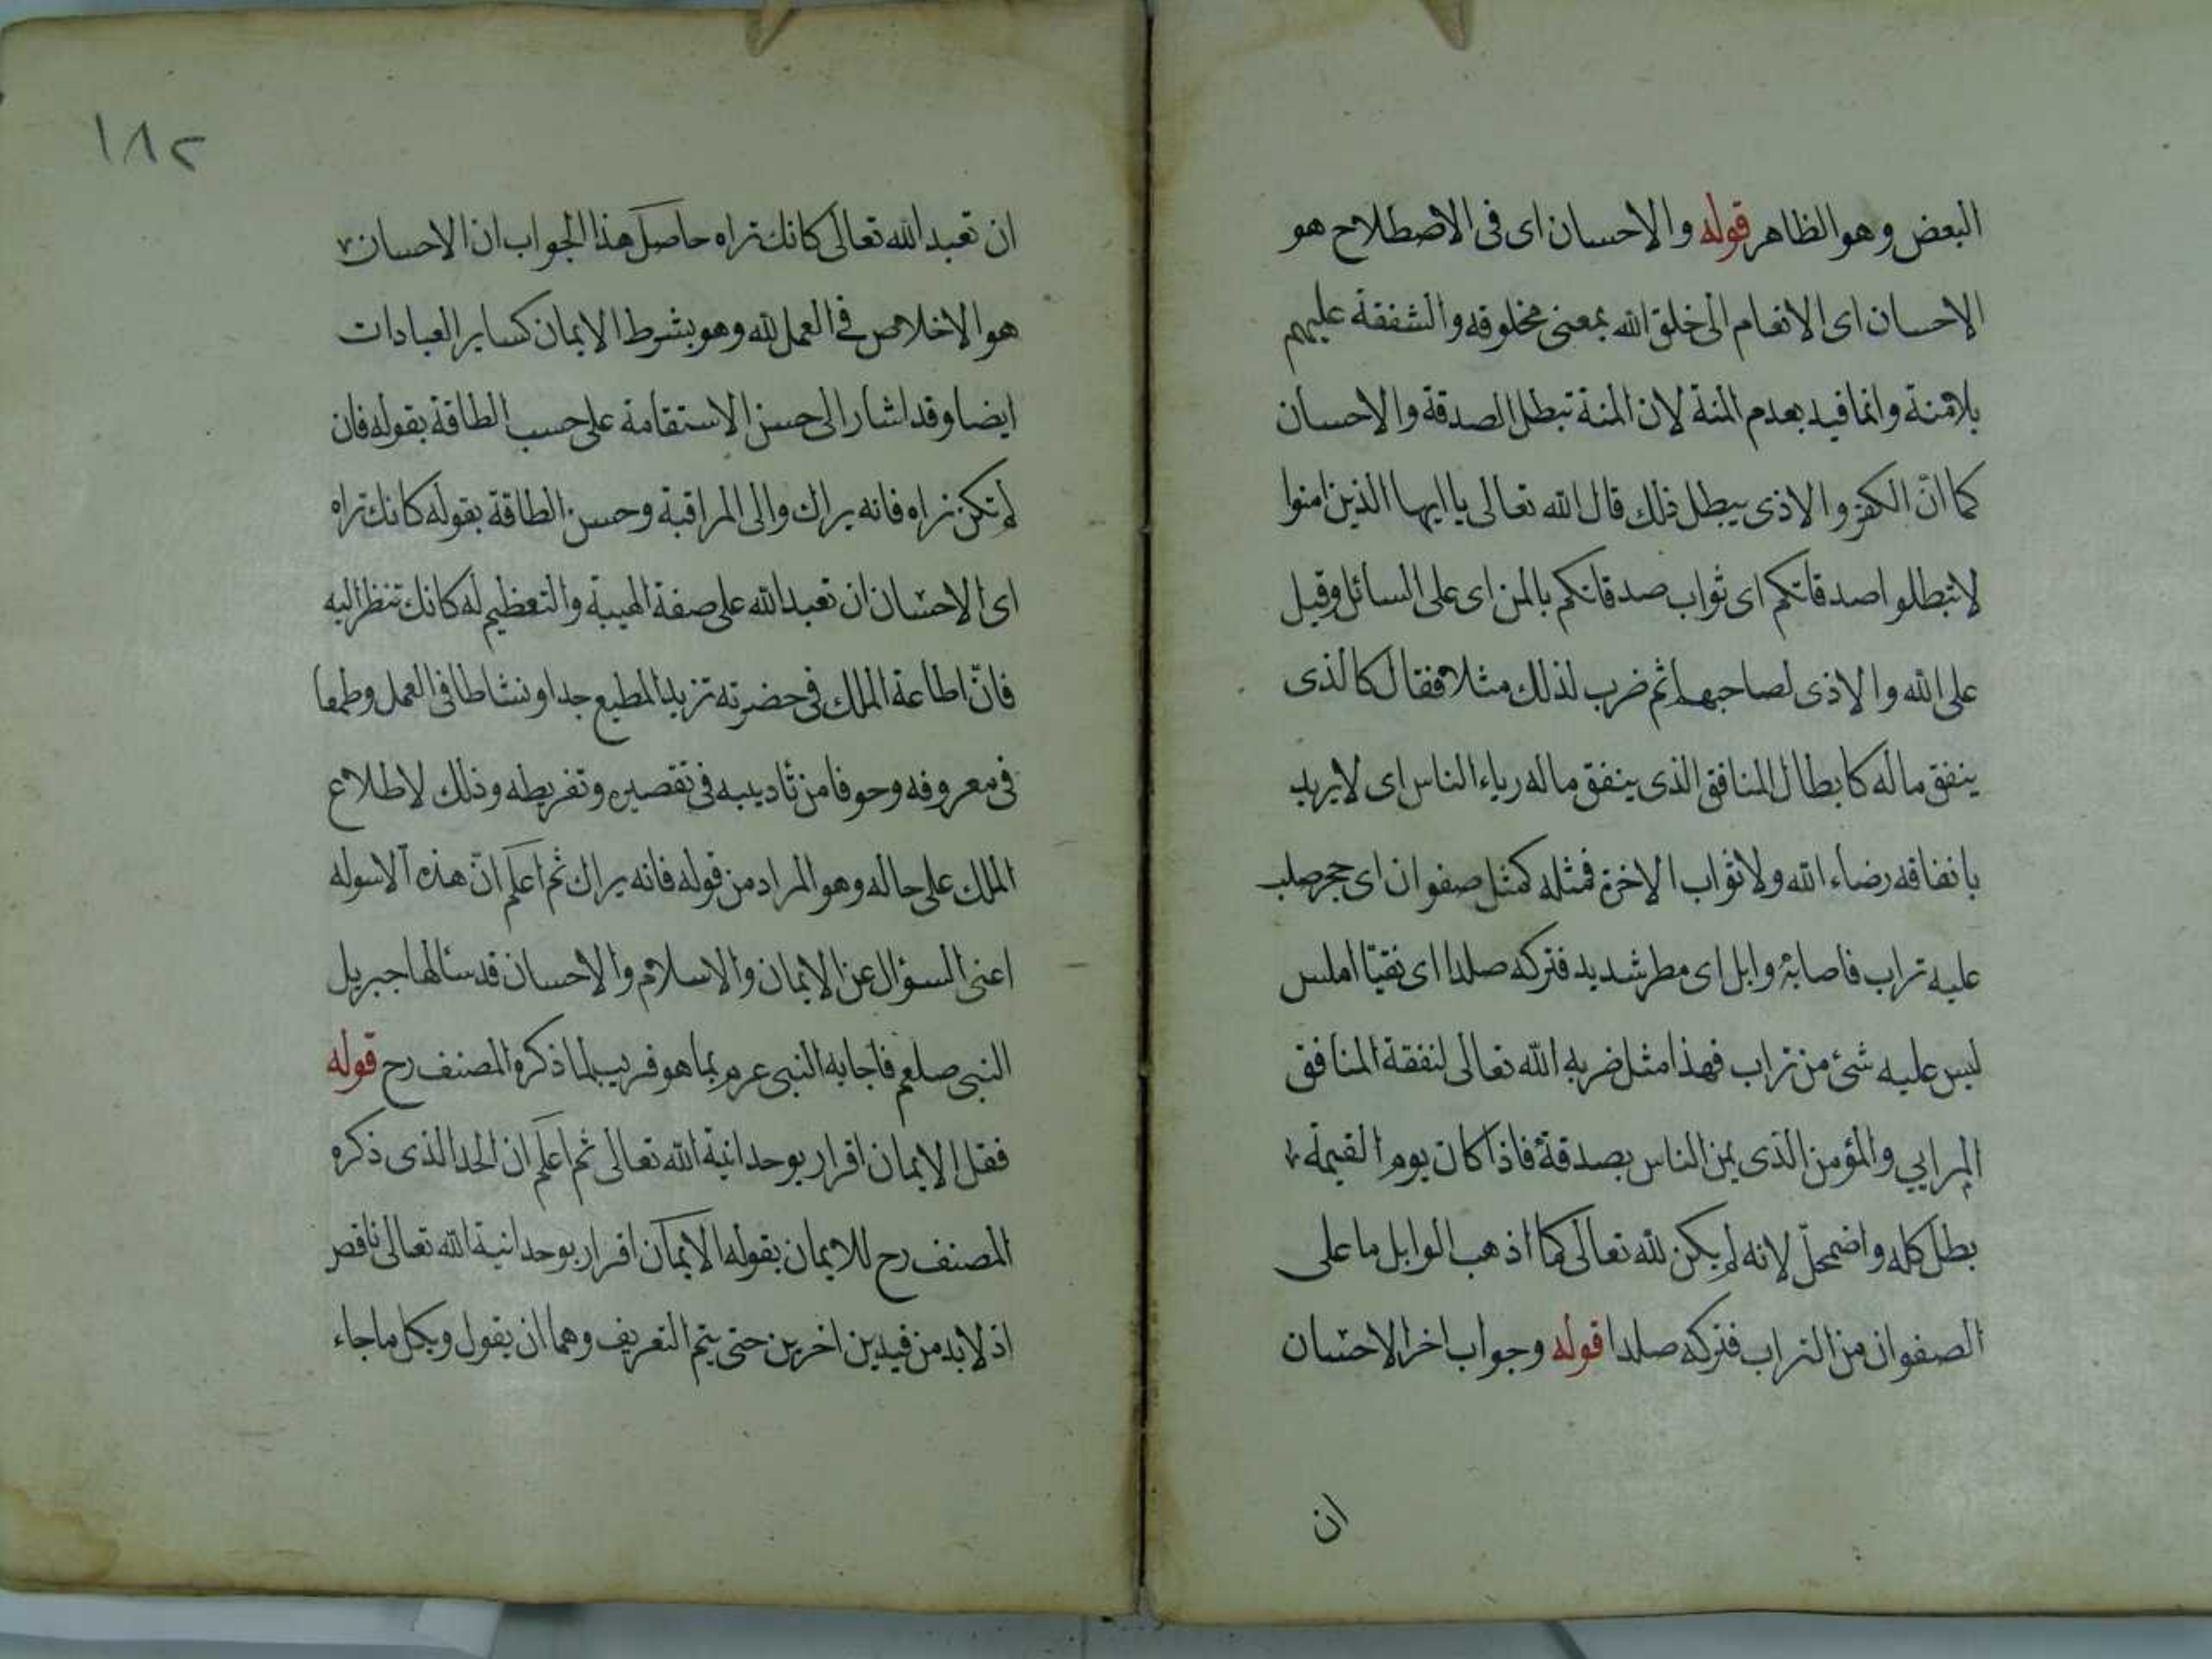 البعض وهو الظاهر قوله والاحسان اى فى الاصطلاح هو
الاحسان اى الانعام الى خلق الله بمعنى مخلوقه والشفقة عليهم
بلا منة وانما قيد بعدم المنة لان المنة تبطل الصدقة والاحسان
كما انّ الكفر والاذى يبطل ذلك قال الله تعالى يا ايها الذين امنوا
لا تبطلوا صدقاتكم اى ثواب صدقاتكم بالمن اى على السائل وقيل
على الله والاذى لصاحبها ثم ضرب لذلك مثلا فقال كالذى
ينفق ماله كابطال المنافق الذى ينفق ماله رياء الناس اى لا يريد
بانفاقه رضاء الله ولا ثواب الاخرة فمثله كمثل صفوان اى حجر صلب
عليه تراب فاصابه وابل اى مطر شديد فتركه صلدا اى نقيّا املس
ليس عليه شئ من تراب فهذا مثل ضربه الله تعالى لنفقة المنافق
المرايى والمؤمن الذى يمن الناس بصدقة فاذا كان يوم القيمة
بطل كله واضمحلّ لانه لم يكن لله تعالى كما اذهب الوابل ما على
الصفوان من التراب فتركه صلدا قوله وجواب اخر الاحسان
ان
١٨٢
ان تعبد الله تعالى كانك تراه حاصل هذا الجواب ان الاحسان
هو الاخلاص فى العمل لله وهو بشرط الايمان كساير العبادات
ايضا وقد اشار الى حسن الاستقامة على حسب الطاقة بقوله فان
لم تكن تراه فانه يراك والى المراقبة وحسن الطاقة بقوله كانك تراه
اى الاحسان ان تعبد الله على صفة الهيبة والتعظيم له كانك تنظر اليه
فانّ اطاعة الملك فى حضرته تزيد المطيع جدا ونشاطا فى العمل وطمعا
فى معروفه وحوفا من تأديبه فى تقصيره وتفريطه وذلك لاطلاع
الملك على حاله وهو المراد من قوله فانه يراك ثم اعلم انّ هذه الاسوله
اعنى السؤال عن الايمان والاسلام والاحسان قد سألها جبريل
النبى صلعم فاجابه النبى عم بما هو قريب لما ذكره المصنف رح قوله
فقل الايمان اقرار بوحدانية الله تعالى ثم اعلم ان الحد الذى ذكره
المصنف رح للايمان بقوله الايمان اقرار بوحدانية الله تعالى ناقص
اذ لا بد من قيدين اخرين حتى يتم التعريف وهما ان يقول وبكل ما جاء